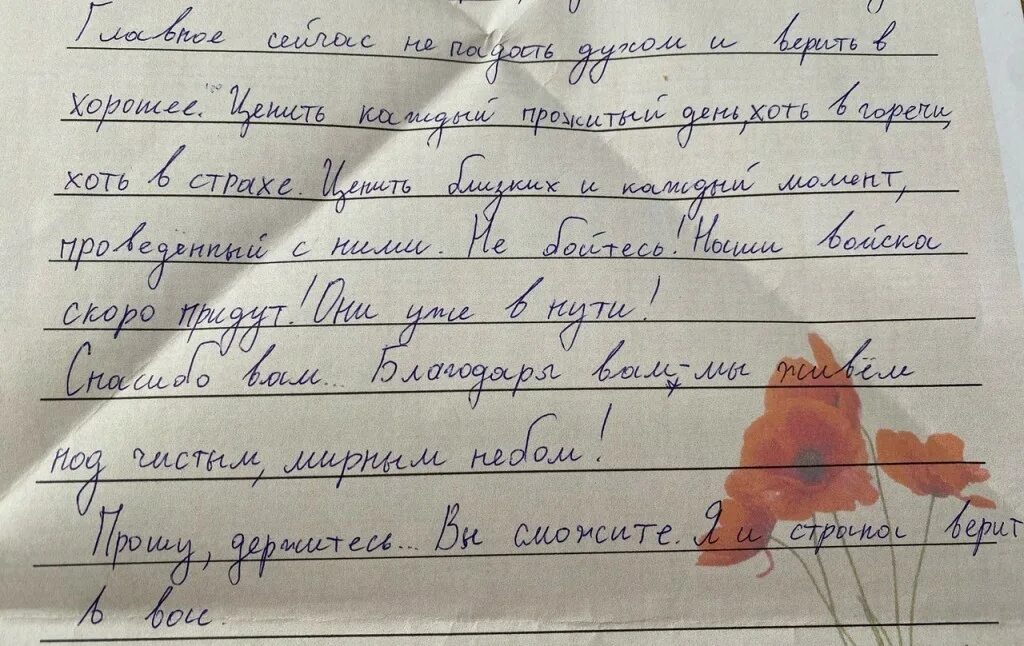 Главное сейчас не падать духом и верить в
хорошее. Ценить каждый прожитый день, хоть в горечи,
хоть в страхе. Ценить близких и каждый момент,
проведённый с ними. Не бойтесь! Наши войска
скоро придут! Они уже в пути!
Спасибо вам... Благодаря вам - мы живём
под чистым, мирным небом!
Прошу, держитесь... Вы сможите. Я и страна верит
в вас.